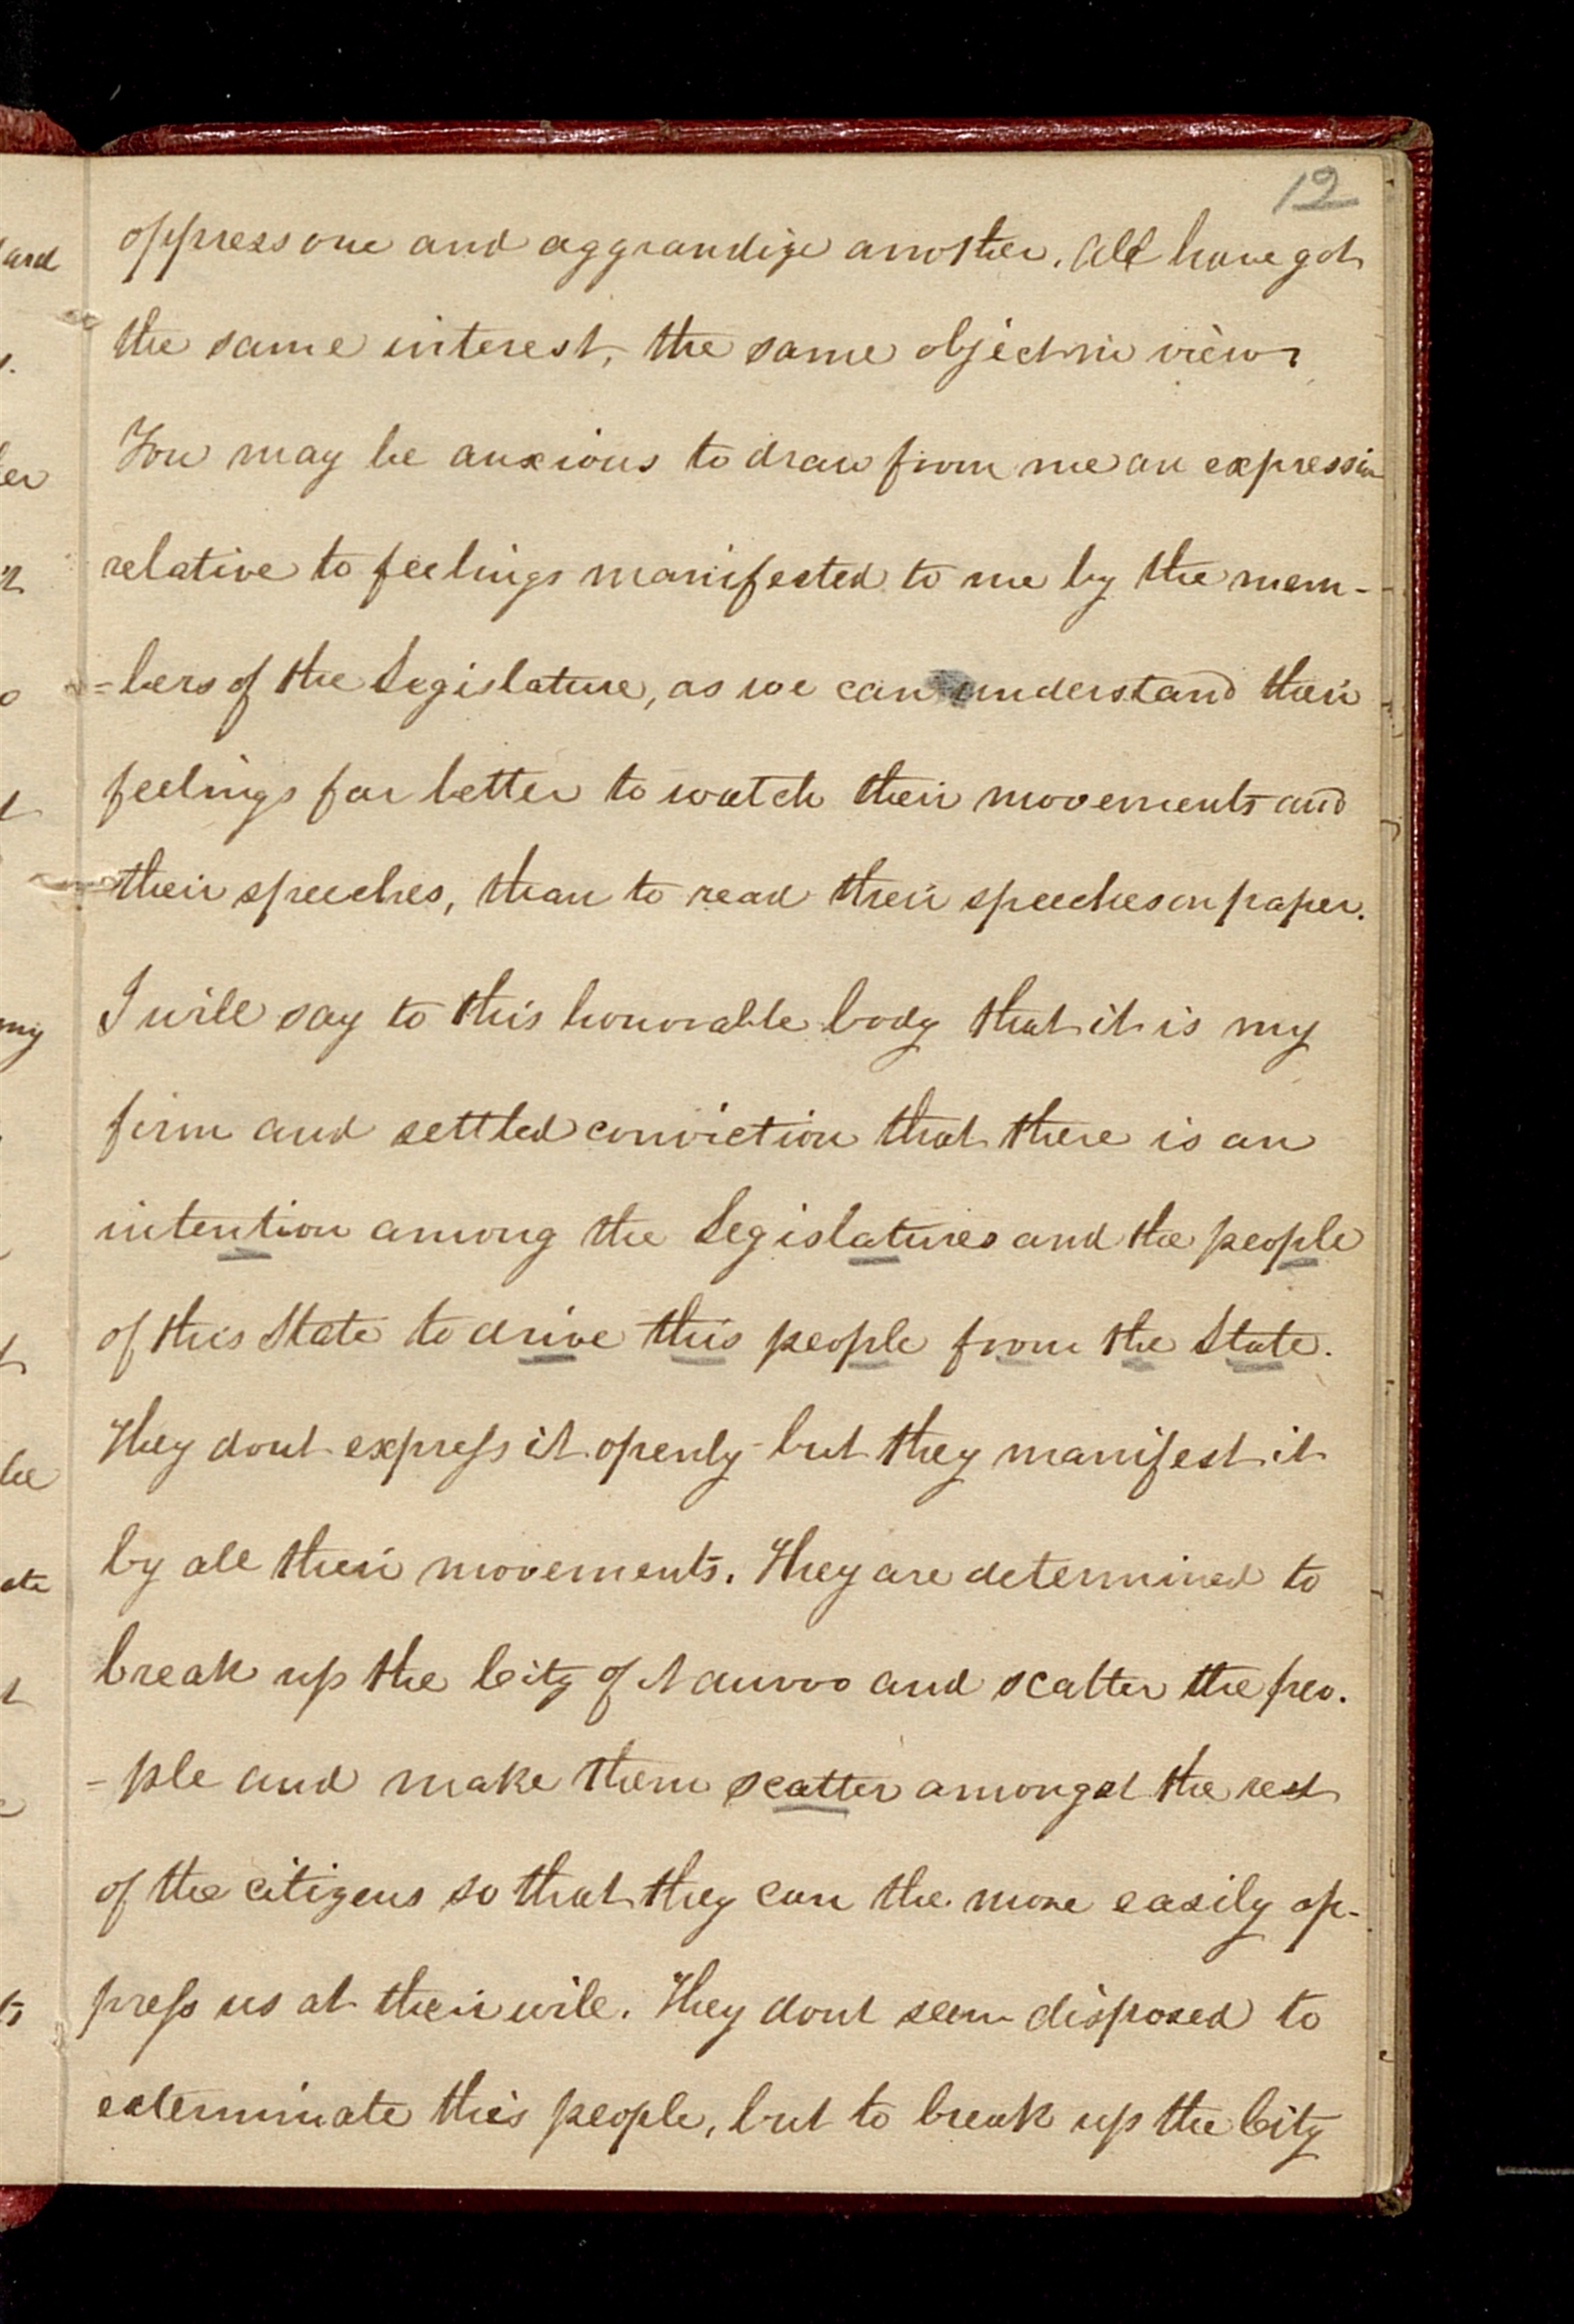 12
oppress one and aggrandize another. All have got
the same interest, the same object in view,
You may be anxious to draw from me an expression
relative to feelings manifested to me by the mem-
=bers of the Legislature, as we can understand their
feelings far better to watch their movements and
their speeches, than to read their speeches on paper.
I will say to this honorable body that it is my
firm and settled conviction that there is an
intention among the Legislatures and the people
of this State to drive this people from the State.
They dont express it openly but they manifest it
by all their movements. They are determined to
break up the City of Nauvoo and scatter the peo-
-ple and make them scatter amongst the rest
of the citizens so that they can the more easily op-
press us at their will. They dont seem disposed to
exterminate this people, but to break up the City